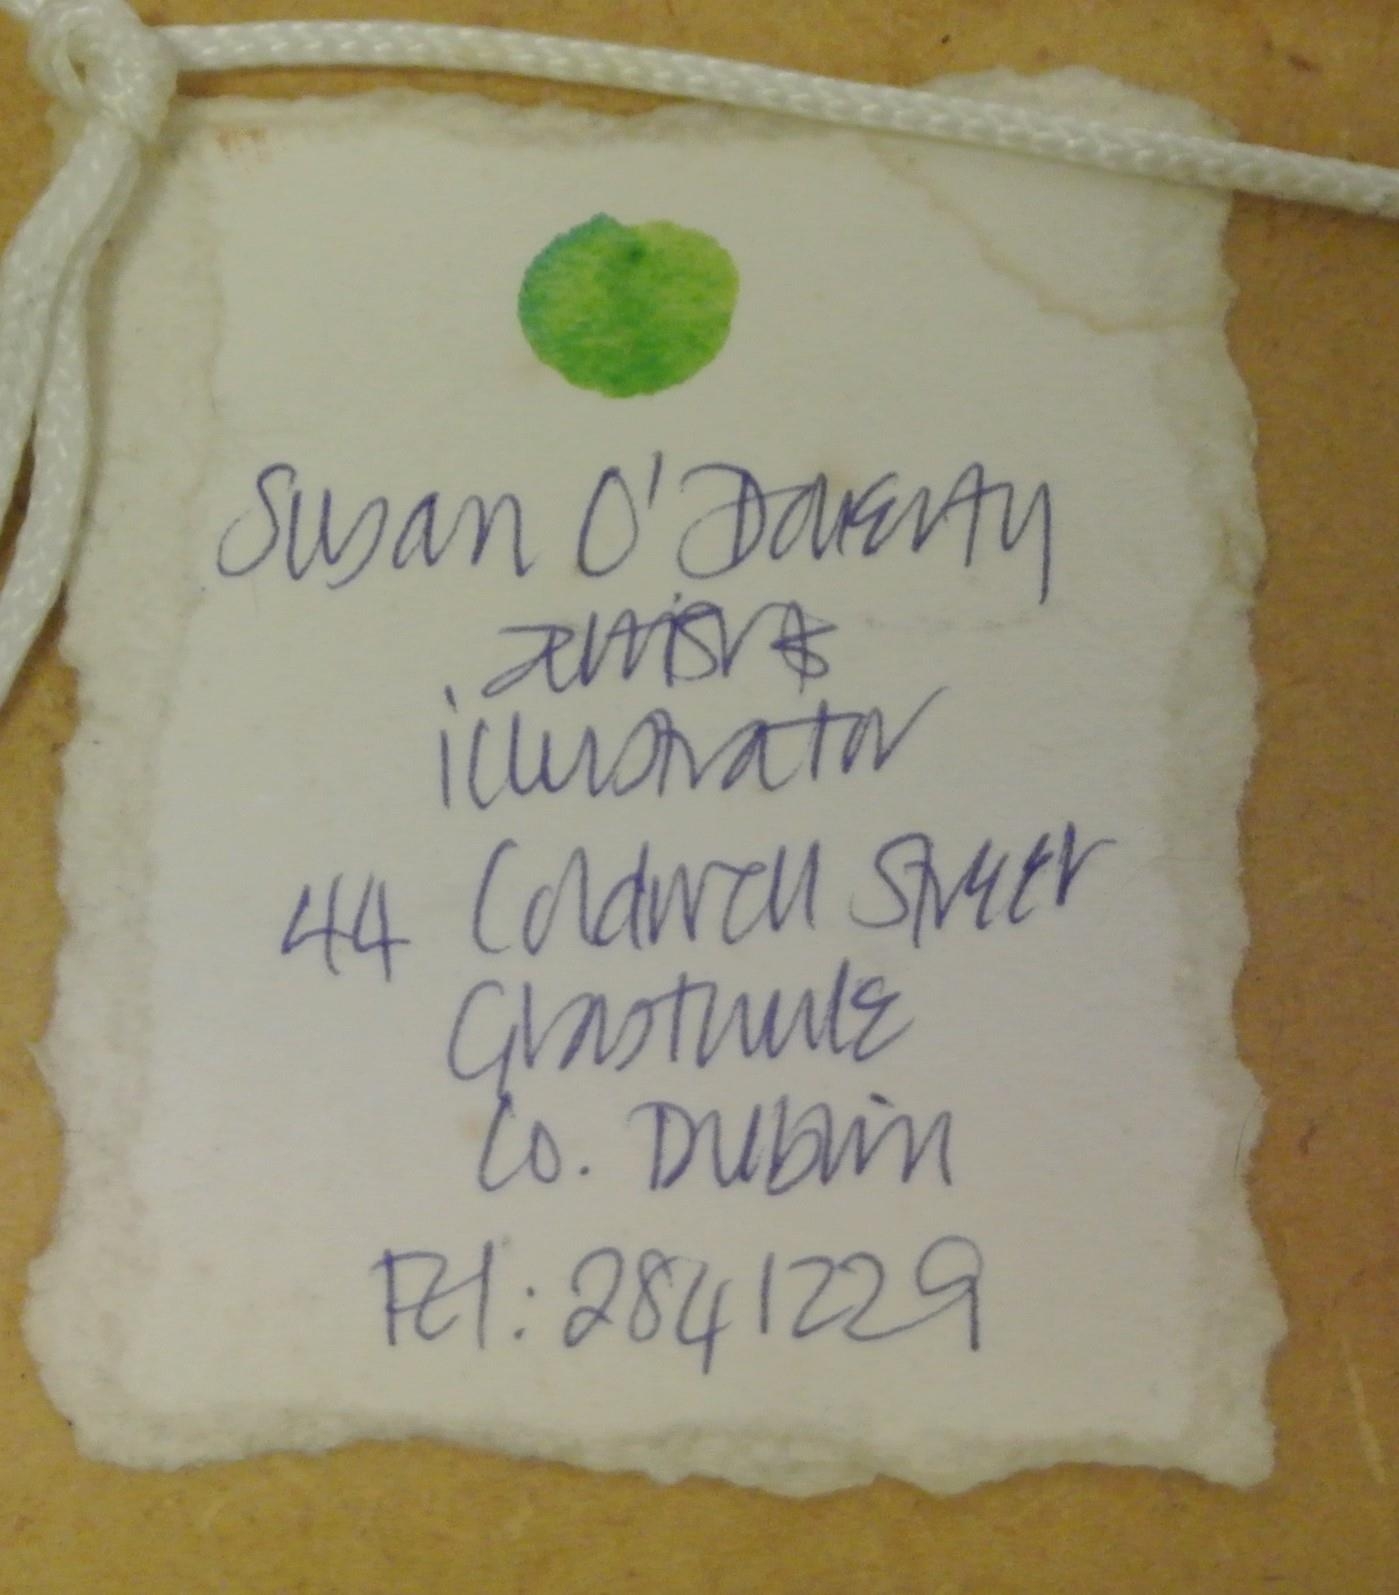 Susan O'Doherty
artist &
illustrator
44 Coldwell Street
Glasthule
Co. Dublin
Tel: 2841229